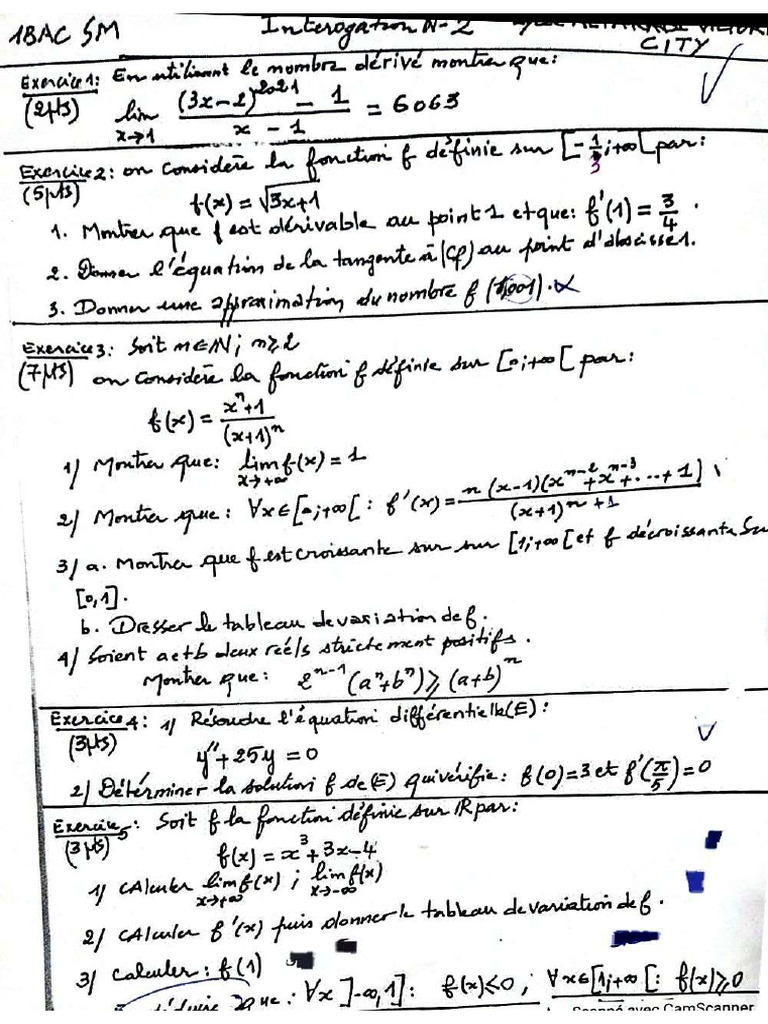 1BAC SM Interogation N-2 CITY
Exercice 1: En utilisant le nombre dérivé montrer que:
(2pts) lim x→1 ((3x-2)^2021 - 1)/(x - 1) = 6063
Exercice 2: on considère la fonction f définie sur [-1/3; +∞[ par:
(5pts) f(x) = √(3x+1)
1. Montrer que f est dérivable au point 1 et que: f'(1) = 3/4.
2. Donner l'équation de la tangente à (Cf) au point d'abscisse 1.
3. Donner une approximation du nombre f(1,001).
Exercice 3: Soit n∈ℕ; n≥2
(7pts) on considère la fonction f définie sur [0; +∞[ par:
f(x) = (x^n+1)/(x+1)^n
1/ Montrer que: lim x→+∞ f(x) = 1
2/ Montrer que: ∀x∈[0;+∞[ : f'(x) = n(x-1)(x^n-2 + x^n-3 + ... + 1)/(x+1)^n+1
3/ a. Montrer que f est croissante sur sur [1;+∞[ et f décroissante sur
[0,1].
b. Dresser le tableau de variation de f.
4/ Soient a et b deux réels strictement positifs.
Montrer que: 2^n-1 (a^n + b^n) ≥ (a+b)^n
Exercice 4: 1/ Résoudre l'équation différentielle (E):
(3pts) y'' + 25y = 0
2/ Déterminer la solution f de (E) qui vérifie: f(0)=3 et f'(π/5)=0
Exercice 5: Soit f la fonction définie sur ℝ par:
(3pts) f(x) = x^3 + 3x - 4
1/ CAlculer lim x→+∞ f(x) ; lim x→-∞ f(x)
2/ CAlculer f'(x) puis donner le tableau de variation de f.
3/ Calculer: f(1)
que: ∀x ]-∞,1]: f(x)≤0 ; ∀x∈[1;+∞[ : f(x)≥0
Scanné avec CamScanner